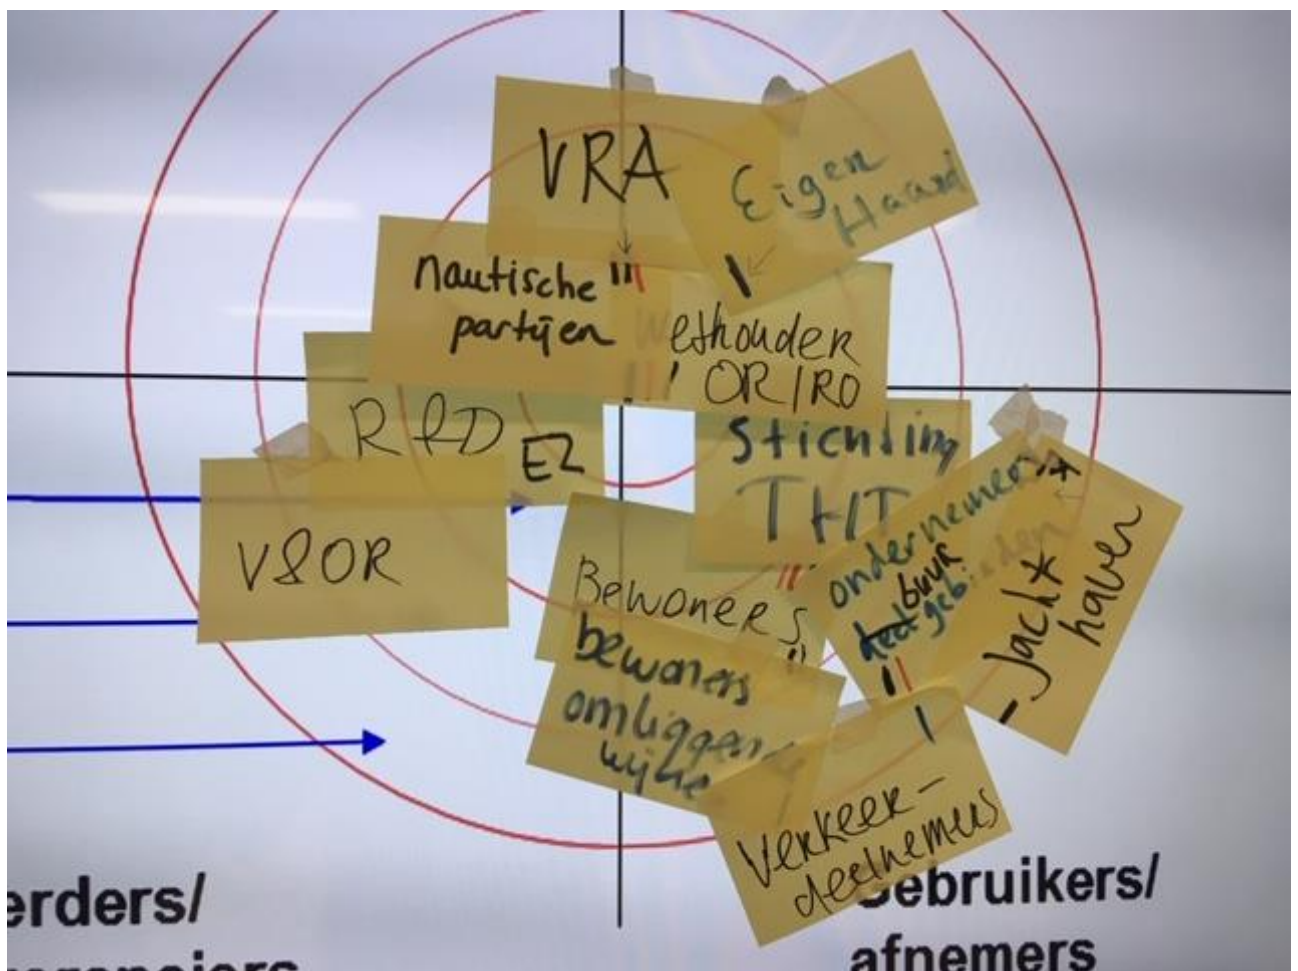 VRA
Eigen
Haard
nautische
partijen
Wethouder
OR/RO
R&D EZ
Stichting
THT
V&OR
ondernemers
buur
Jacht
haven
Bewoners
bewoners
omliggende
wijke
Verkeer-
deelnemers
erders/
Gebruikers/
afnemers